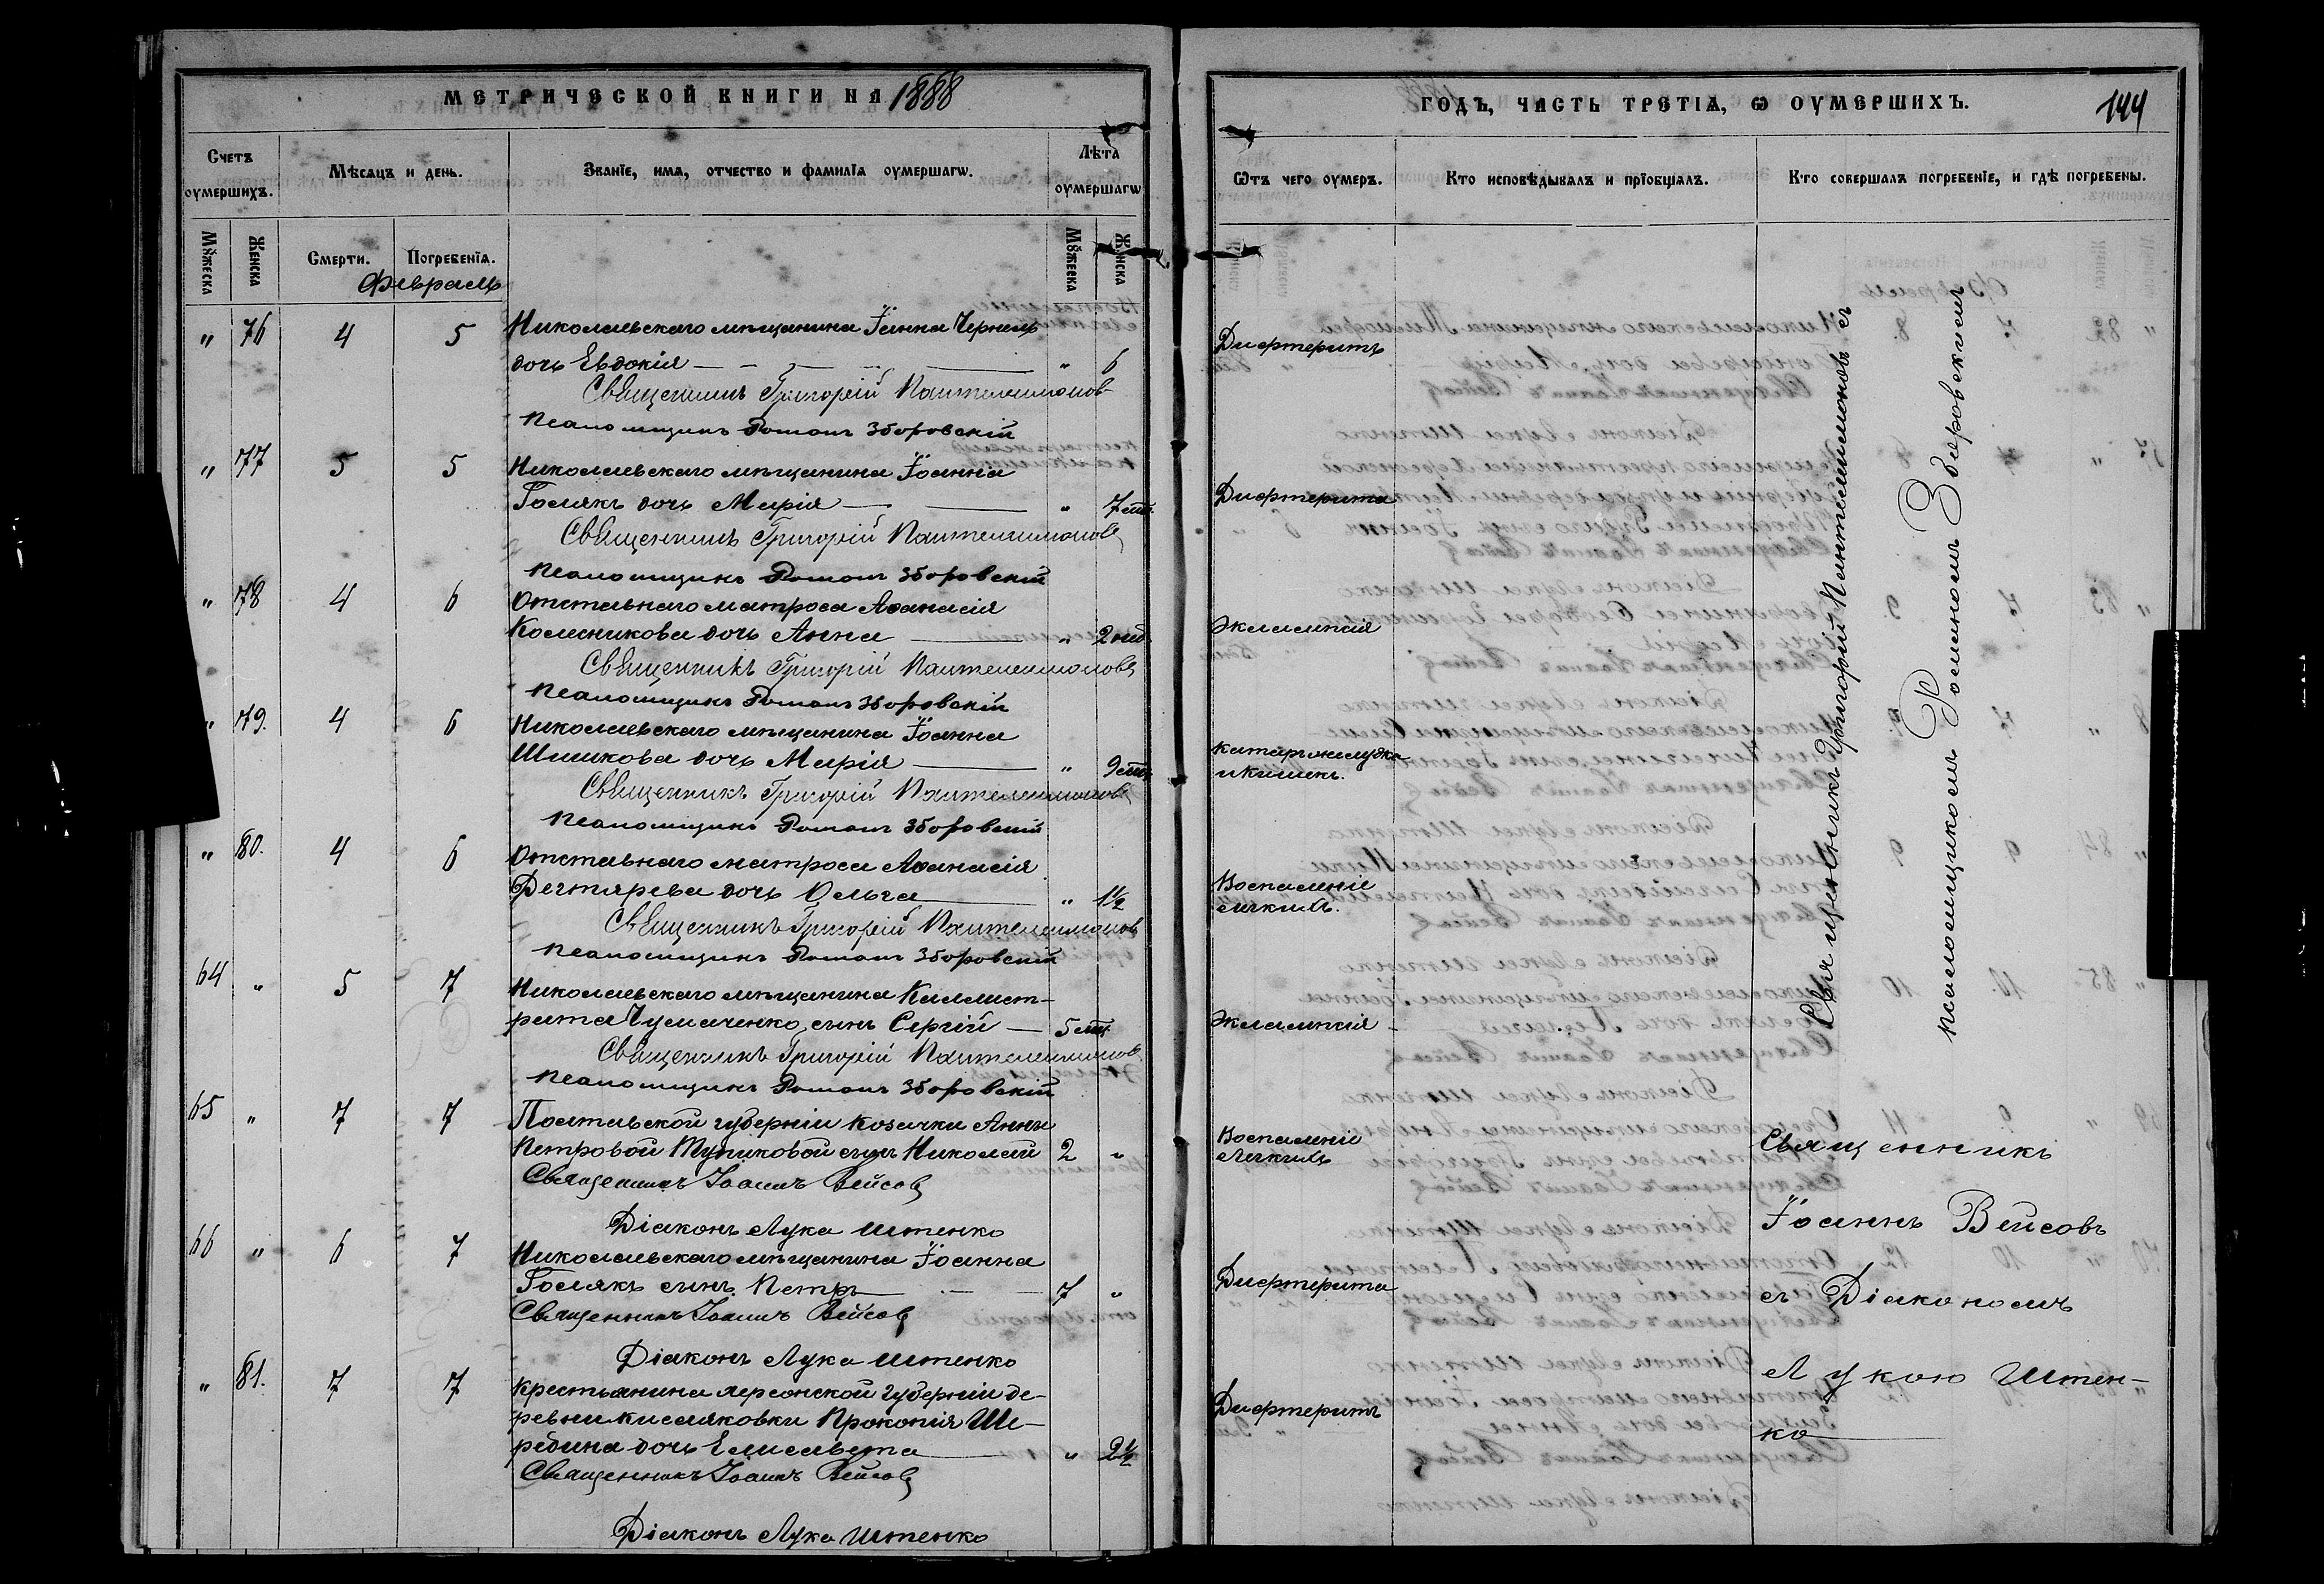 МЕТРИЧЕСКОЙ КНИГИ НА 1888
Счетъ оумершихъ.
Мѣсяцъ и день.
Званїе, имѧ, отчество и фамилїѧ оумершагѡ.
Лѣта оумершагѡ
Мꙋжеска
Женска
Смерти.
Погребенїѧ.
Мꙋжеска
Женска
Февраль
" 76 4 5 Николаевскаго мѣщанина Іоанна Чернявс
дочь Евдокія " 6
Священникъ Григорій Пантелеимонов
Псаломщикъ Романъ Зборовскій
" 77 5 5 Николаевскаго мѣщанина Іоанна
Голякъ дочь Марія " 7 мѣс.
Священникъ Григорій Пантелеимоновъ
Псаломщикъ Романъ Зборовскій
" 78 4 6 Отставнаго матроса Аѳанасія
Колесникова дочь Анна " 2 нед.
Священникъ Григорій Пантелеимоновъ
Псаломщикъ Романъ Зборовскій
" 79. 4 6 Николаевскаго мѣщанина Іоанна
Шишкова дочь Марія " 9 мѣс.
Священникъ Григорій Пантелеимоновъ
Псаломщикъ Романъ Зборовскій
" 80. 4 6 Отставнаго матроса Аѳанасія
Дегтярева дочь Ольга " 1½
Священникъ Григорій Пантелеимонов
Псаломщикъ Романъ Зборовскій
64 " 5 7 Николаевскаго мѣщанина Каллист-
рата Чумаченко сынъ Сергій — 5 мѣс.
Священникъ Григорій Пантелеимонов
Псаломщикъ Романъ Зборовскій
65 " 7 7 Полтавской губерніи козачки Анны
Петровой Тупиковой сынъ Николай 2 "
Священникъ Іоаннъ Вейсовъ
Діаконъ Лука Штенко
66 " 6 7 Николаевскаго мѣщанина Іоанна
Голякъ сынъ Петръ 7 "
Священникъ Іоаннъ Вейсовъ
Діаконъ Лука Штенко
" 81. 7 7 Крестьянина Херсонской губерніи де-
ревни Кисляковки Прокопія Ще-
рбина дочь Елисавета " 2½
Священникъ Іоаннъ Вейсовъ
Діаконъ Лука Штенко
ГОДЪ, ЧАСТЬ ТРЕТІѦ, Ѡ ОУМЕРШИХЪ.
144
Ѿтъ чего оумеръ.
Кто исповѣдывалъ и прїобщалъ.
Кто совершалъ погребенїе, и гдѣ погребены.
Дифтеритъ
Дифтерита
Эклампсія
Катаръ желудка
и кишекъ.
Воспаленіе
легкихъ.
Эклампсія
Воспаленіе
легкихъ
Дифтерита
Дифтеритъ
Священникъ Григорій Пантелеимоновъ съ
псаломщикомъ Романомъ Зборовскимъ
Священникъ
Іоаннъ Вейсовъ
съ Діакономъ
Лукою Штен-
ко